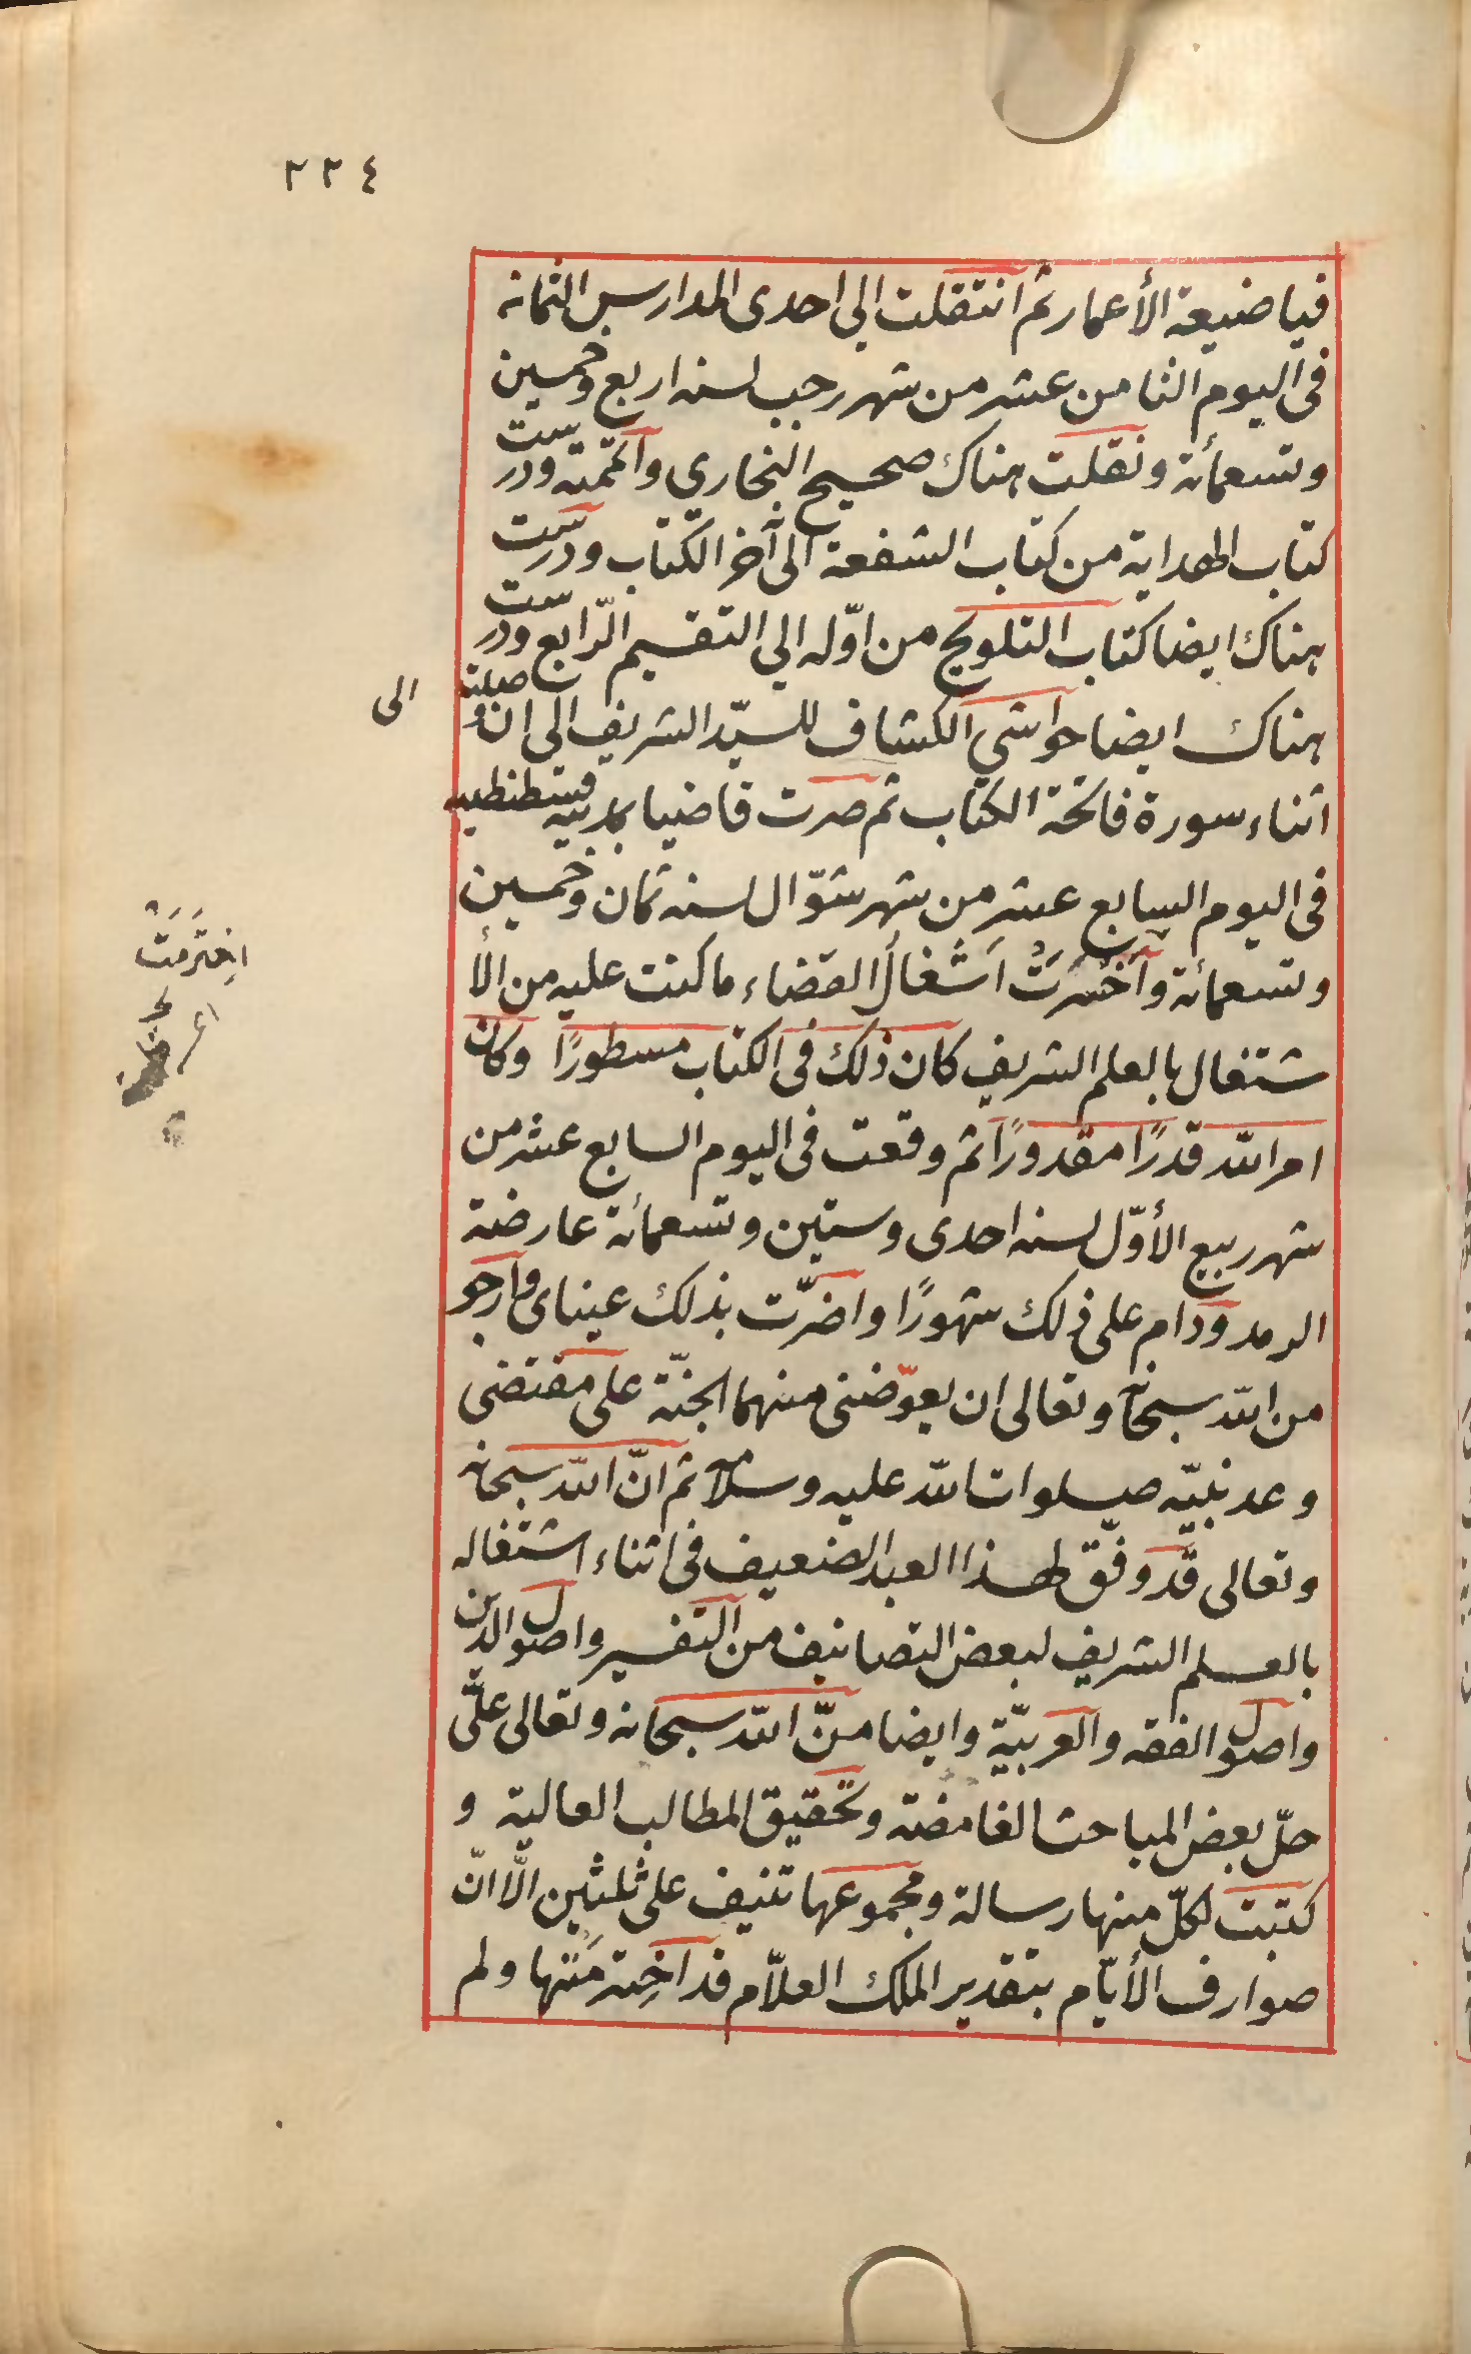 ٢٢٤
فيا ضيعة الأعمار ثم انتقلت الى احدى المدارس الثمانه
فى اليوم الثامن عشر من شهر رجب لسنه اربع وخمسين
وتسعمائة ونقلت هناك صحيح البخاري واتممته ودرست
كتاب الهداية من كتاب الشفعة الى آخر الكتاب ودرست
هناك ايضا كتاب التلويح من اوّله الى التقسيم الرّابع ودرست
هناك ايضا حواشي الكشاف للسيّد الشريف الى ان وصلت
الى
اثناء سورة فاتحة الكتاب ثم صرت قاضيا بمدينه قسطنطيه
فى اليوم السابع عشر من شهر شوّال لسنه ثمان وخمسين
وتسعمائة وآخْتَرَمَتْ اَشْغَالُ القضاء ما كنت عليه من الأ
اخترمَتْ
شتغال بالعلم الشريف كان ذلك فى الكتاب مسطورًا وكان
امر الله قدرًا مقدورًا ثم وقعت فى اليوم السابع عشر من
شهر ربيع الأوّل لسنه احدى وستين وتسعمائة عارضة
الرمد ودام على ذلك شهورًا واضرّت بذلك عيناى وارجو
من الله سبحانه وتعالى ان يعوّضنى منهما الجنّة على مقتضى
وعد نبيّه صلوات الله عليه وسلامه ثم انّ الله سبحانه
وتعالى قد وفّق لهذا العبد الضعيف فى اثناء اشتغاله
بالعلم الشريف لبعض التصانيف من التفسير واصول الدين
واصول الفقه والعربيّة وايضا منّ الله سبحانه وتعالى علىّ
حلّ بعض المباحث الغامضة وتحقيق المطالب العالية و
كتبت لكلّ منها رسالة ومجموعها تنيف على ثلثين الّا انّ
صوارف الأيّام بتقدير الملك العلاّم قد اخترمَتها ولم